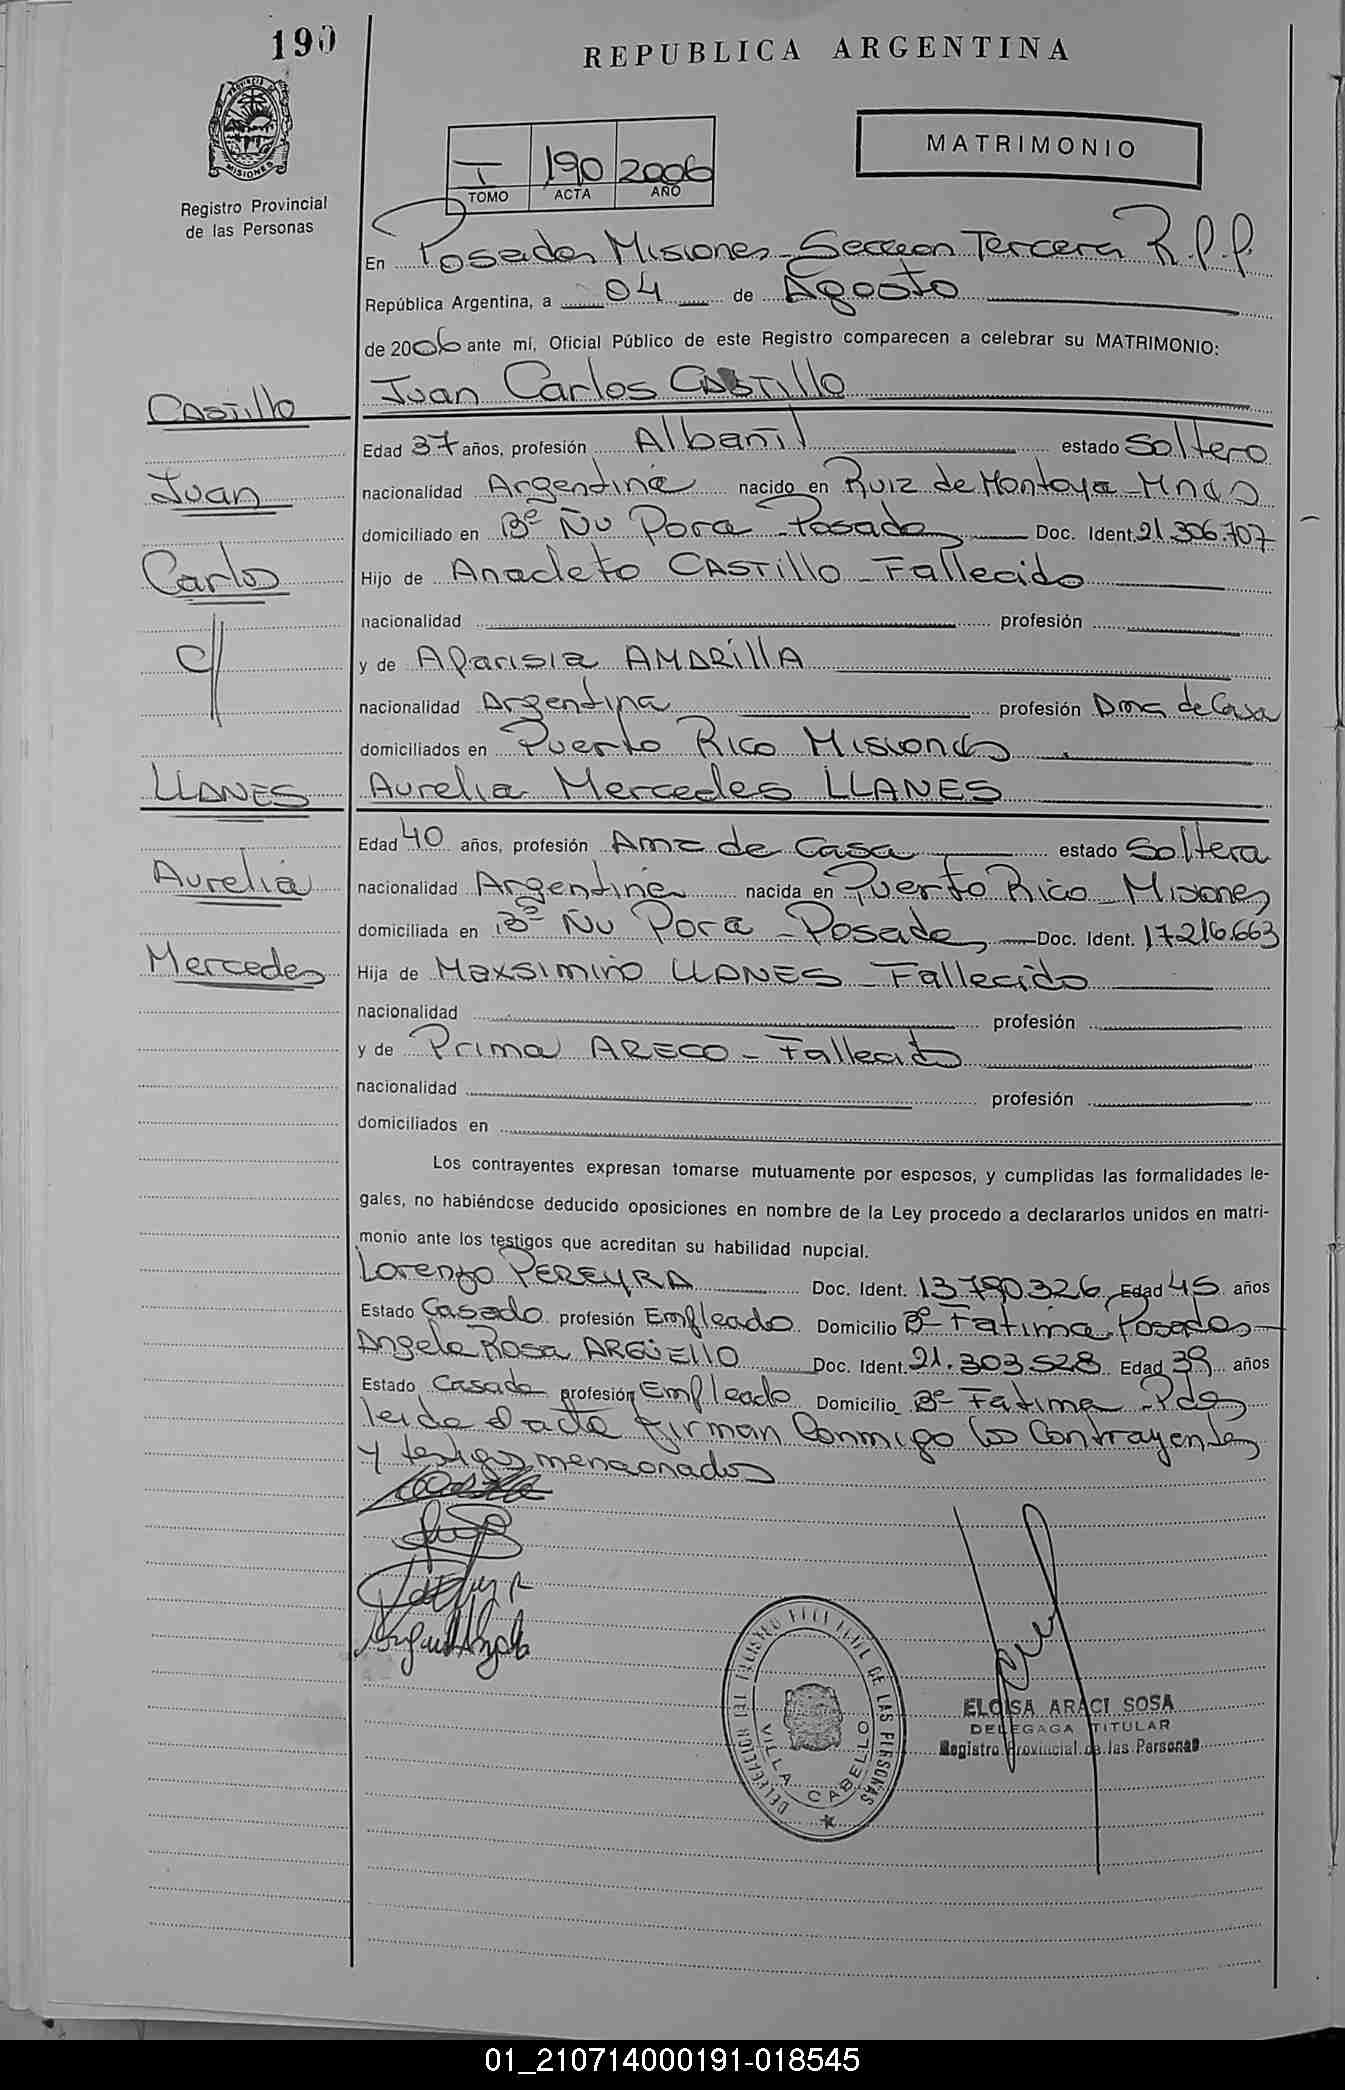 190
REPUBLICA ARGENTINA
MATRIMONIO
I 190 2006
TOMO ACTA AÑO
PROVINCIA DE MISIONES
Registro Provincial
de las Personas
En Posadas Misiones - Seccion Tercera R.P.P.
República Argentina, a 04 de Agosto
de 2006 ante mí, Oficial Público de este Registro comparecen a celebrar su MATRIMONIO:
CASTILLO
Juan Carlos CASTILLO
Edad 37 años, profesión Albañil estado Soltero
Juan
nacionalidad Argentina nacido en Ruiz de Montoya - Mnes
domiciliado en Bº Ñu Pora - Posadas Doc. Ident. 21.306.707
Carlos
Hijo de Anacleto CASTILLO - Fallecido
nacionalidad profesión
c//
y de Aparisia AMARILLA
nacionalidad Argentina profesión Ama de Casa
domiciliados en Puerto Rico Misiones
LLANES
Aurelia Mercedes LLANES
Edad 40 años, profesión Ama de Casa estado Soltera
Aurelia
nacionalidad Argentina nacida en Puerto Rico - Misiones
domiciliada en Bº Ñu Pora - Posadas Doc. Ident. 17.216.663
Mercedes
Hija de Maxsimino LLANES - Fallecido
nacionalidad profesión
y de Prima ARECO - Fallecida
nacionalidad profesión
domiciliados en
Los contrayentes expresan tomarse mutuamente por esposos, y cumplidas las formalidades le-
gales, no habiéndose deducido oposiciones en nombre de la Ley procedo a declararlos unidos en matri-
monio ante los testigos que acreditan su habilidad nupcial.
Lorenzo PEREYRA Doc. Ident. 13.790.326 Edad 45 años
Estado Casado profesión Empleado Domicilio Bº Fatima Posadas
Angela Rosa ARGÜELLO Doc. Ident. 21.303.528 Edad 39 años
Estado Casada profesión Empleado Domicilio Bº Fatima - Pdas
leida el acta firman Conmigo los Contrayentes
y testigos mencionados
DELEGACION DEL REGISTRO PROVINCIAL DE LAS PERSONAS
VILLA CABELLO
ELOISA ARACI SOSA
DELEGADA TITULAR
Registro Provincial de las Personas
01_210714000191-018545